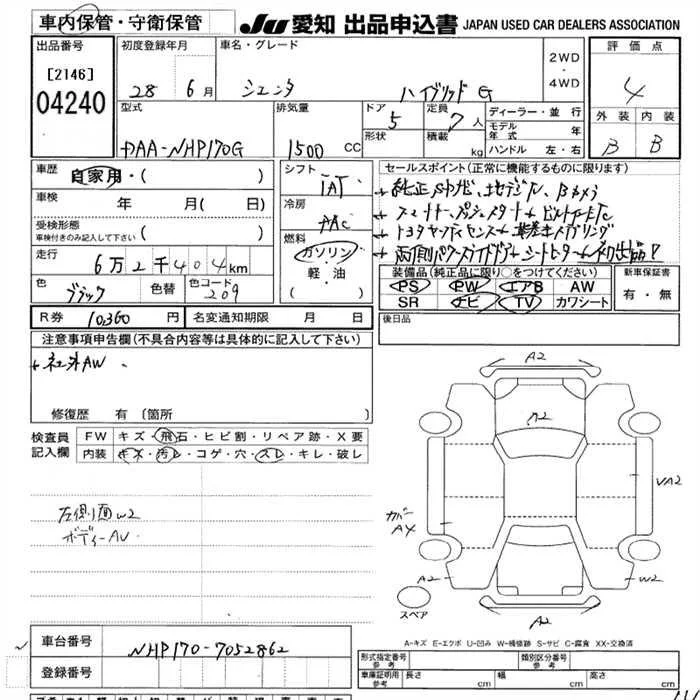 車内保管・守衛保管
JU 愛知 出品申込書 JAPAN USED CAR DEALERS ASSOCIATION
出品番号
[2146]
04240
初度登録年月
28 6月
車名・グレード
シエンタ ハイブリッド G
2WD
・
4WD
評価点
4
外装 内装
B B
型式
DAA-NHP170G
排気量
1500 CC
ドア
5
形状
定員
7人
積載 kg
ディーラー・並行
モデル年式 年
ハンドル 左・右
車歴
自家用・( )
車検 年 月( 日)
受検形態
車検付きのみ記入して下さい ( )
走行
6万2千404km
色
ブラック
色替
色コード
209
シフト
IAT
冷房
AAC
燃料
ガソリン
・
軽・油
( )
セールスポイント(正常に機能するものに限ります)
装備品(純正品に限り○をつけてください)
PS PW エアB AW
SR ナビ TV カワシート
新車保証書
有・無
R券 10360 円
名変通知期限 月 日
後日品
注意事項申告欄(不具合内容等は具体的に記入して下さい)
社外AW
修復歴 有〔箇所
検査員
記入欄
FW キズ・飛石・ヒビ割・リペア跡・X要
内装 キズ・汚レ・コゲ・穴・スレ・キレ・破レ
左側面W2
ボディーAU
A2
A2
VA2
カバー
AX
A2
W2
A2
スペア
A-キズ E-エクボ U-凹み W-補修跡 S-サビ C-腐食 XX-交換済
車台番号 NHP170-7052862
登録番号
形式指定番号
参考
類別区分番号
参考
車庫証明用
参考
長さ cm 幅 cm 高さ cm